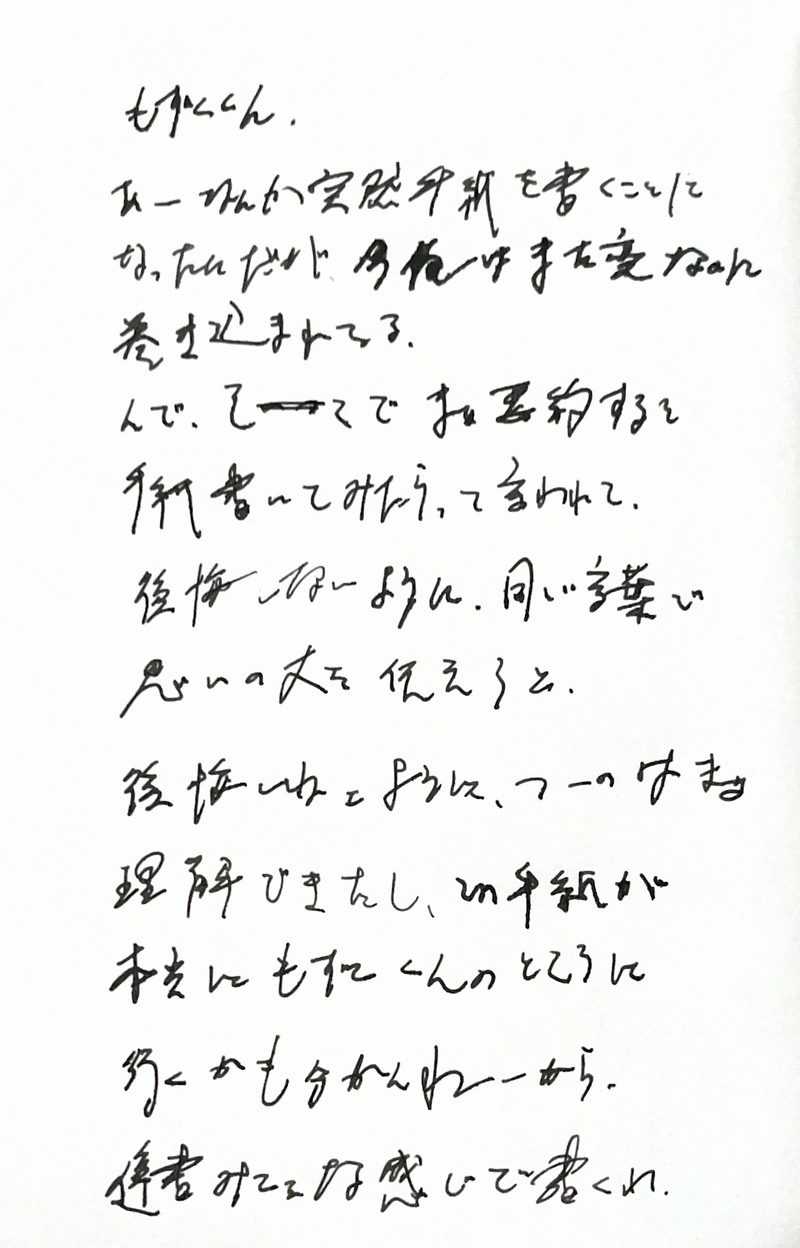 もずくくん.
あーなんか突然手紙を書くことに
なったんだが、今俺はまた変なのに
巻き込まれてる.
んで、そこで まぁ要約すると
手紙書いてみたら、って言われて.
後悔しないように、同じ言葉で
思いの丈を伝えろと.
後悔しねえように、つーのはまぁ
理解できたし、この手紙が
本当にもずくくんのところに
行くかも分かんねーから.
遺書みてえな感じで書くわ.